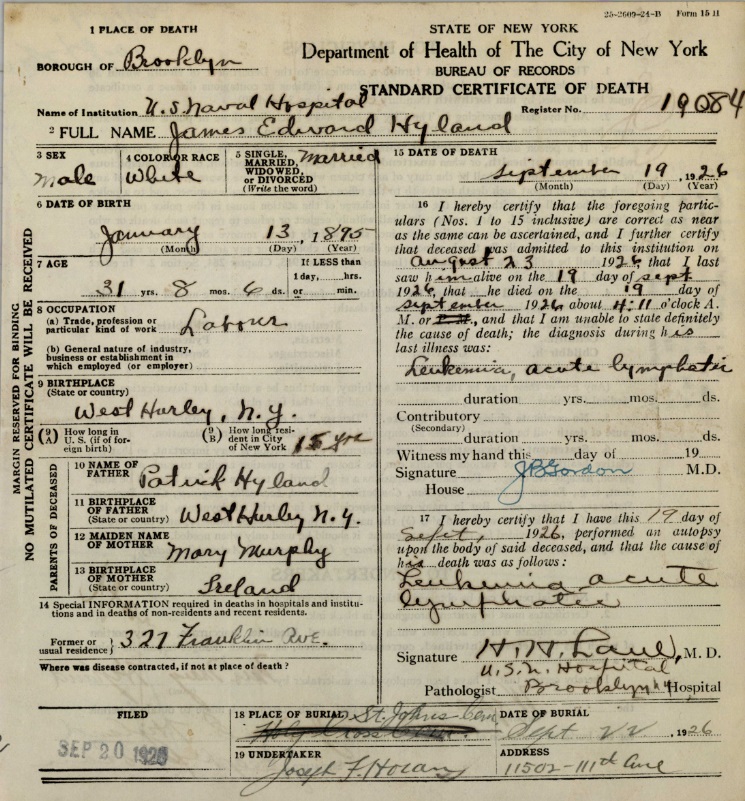 25-2609-24-B Form 15 H
1 PLACE OF DEATH
BOROUGH OF Brooklyn
STATE OF NEW YORK
Department of Health of The City of New York
BUREAU OF RECORDS
STANDARD CERTIFICATE OF DEATH
Name of Institution U.S Naval Hospital
Register No. 19084
2 FULL NAME James Edward Hyland
MARGIN RESERVED FOR BINDING
NO MUTILATED CERTIFICATE WILL BE RECEIVED
3 SEX
Male
4 COLOR OR RACE
White
5 SINGLE, MARRIED, WIDOWED, or DIVORCED (Write the word)
Married
6 DATE OF BIRTH
January 13, 1895
(Month) (Day) (Year)
7 AGE
If LESS than
1 day, hrs.
31 yrs. 8 mos. 6 ds. or min.
8 OCCUPATION
(a) Trade, profession or
particular kind of work Labourer
(b) General nature of industry,
business or establishment in
which employed (or employer)
9 BIRTHPLACE
(State or country)
West Hurley, N.Y.
(9 A) How long in U. S. (if of foreign birth)
(9 B) How long resident in City of New York 15 yrs
PARENTS OF DECEASED
10 NAME OF
FATHER Patrick Hyland
11 BIRTHPLACE
OF FATHER
(State or country) West Hurley N.Y.
12 MAIDEN NAME
OF MOTHER Mary Murphy
13 BIRTHPLACE
OF MOTHER
(State or country) Ireland
14 Special INFORMATION required in deaths in hospitals and institu-
tions and in deaths of non-residents and recent residents.
Former or
usual residence } 327 Franklin Ave.
Where was disease contracted, if not at place of death ?
15 DATE OF DEATH
September 19, 1926
(Month) (Day) (Year)
16 I hereby certify that the foregoing partic-
ulars (Nos. 1 to 15 inclusive) are correct as near
as the same can be ascertained, and I further certify
that deceased was admitted to this institution on
August 23 1926, that I last
saw him alive on the 19 day of Sept
1926, that he died on the 19 day of
September 1926 about 4:11 o'clock A.
M. or P. M., and that I am unable to state definitely
the cause of death; the diagnosis during his
last illness was:
Leukemia, acute lymphatic
duration yrs. mos. ds.
Contributory
(Secondary)
duration yrs. mos. ds.
Witness my hand this day of 19
Signature J B Gordon M.D.
House
17 I hereby certify that I have this 19 day of
Sept, 1926, performed an autopsy
upon the body of said deceased, and that the cause of
his death was as follows :
Leukemia acute
lymphatic
Signature H. H. Lane, M. D.
U.S.N. Hospital
Pathologist Brooklyn N.Y. Hospital
FILED
SEP 20 1926
18 PLACE OF BURIAL St. Johns Cem
Holy Cross Cem.
DATE OF BURIAL
Sept 22, 1926
19 UNDERTAKER
Joseph F. Horan
ADDRESS
11502-111th Ave